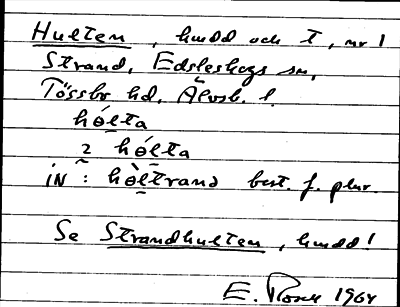 Hulten, hmdd och t, nr 1
Strand, Edsleskogs sn,
Tössbo hd, Älvsb. l.
hɵ́lta
2 hɵ́lta
iN: hɵ̀ltrana best. f. plur.
Se Strandhulten, hmdd!
E. Rosell 1964